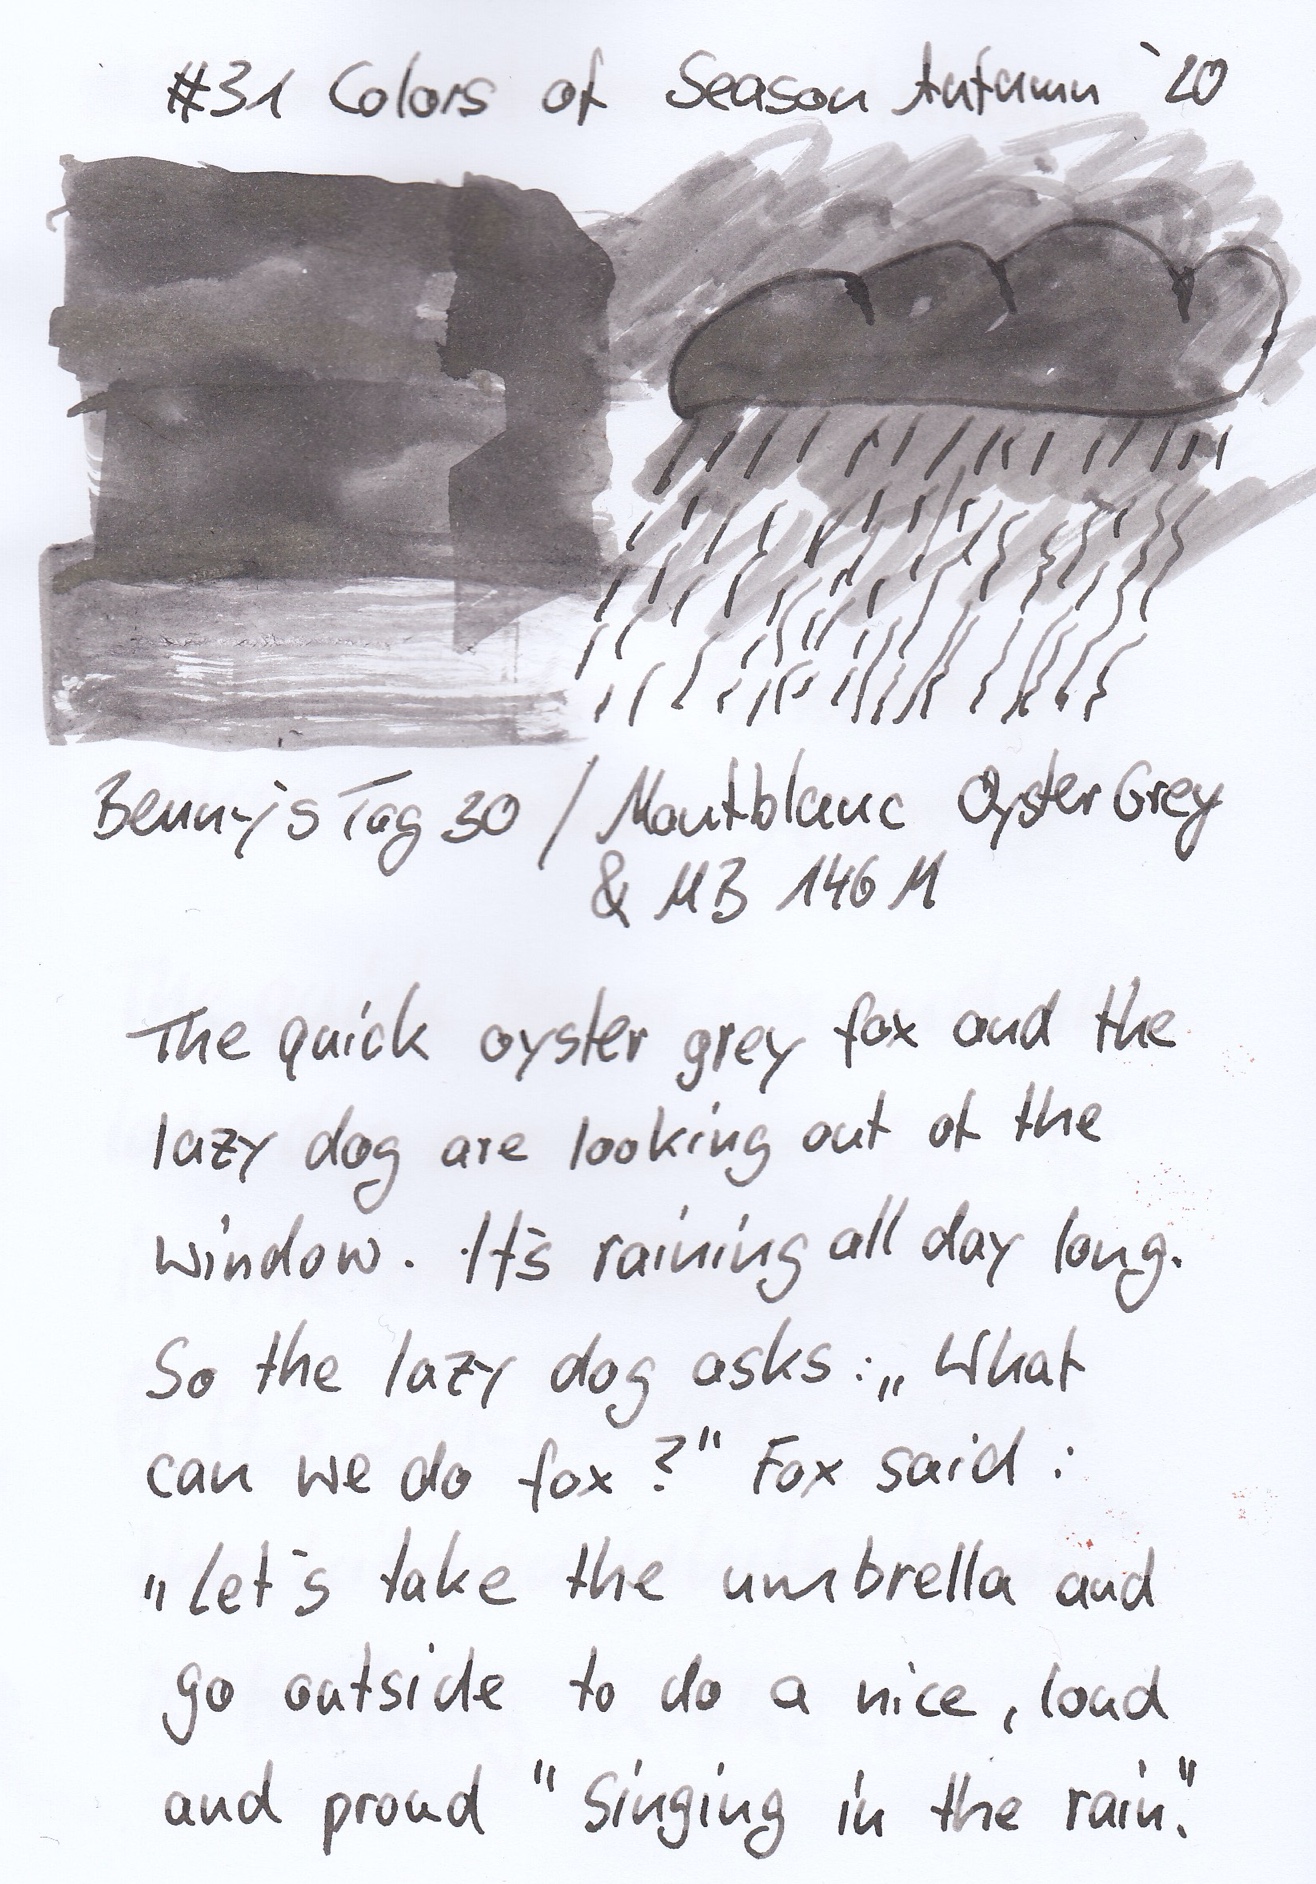 #31 Colors of Season Autumn `20
Benny's Tag 30 / Montblanc Oyster Grey
& MB 146 M
The quick oyster grey fox and the
lazy dog are looking out of the
window. It's raining all day long.
So the lazy dog asks: „What
can we do fox?" Fox said:
"Let's take the umbrella and
go outside to do a nice, loud
and proud "Singing in the rain."